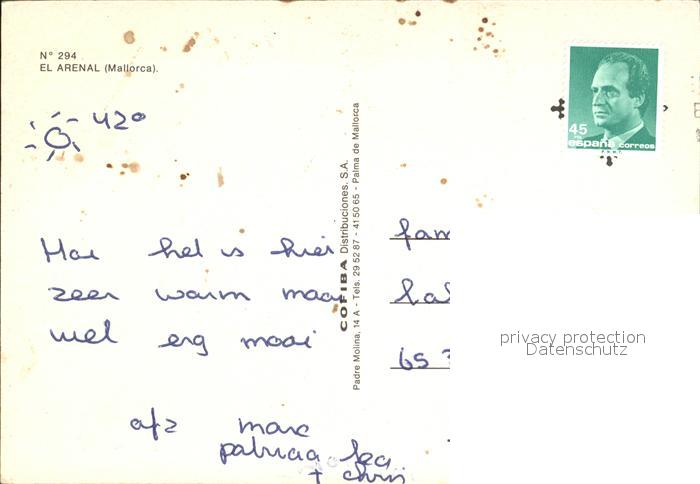 N° 294
EL ARENAL (Mallorca).
42°
Hai het is hier
zeer warm maar
wel erg mooi
afz marc
patricia Lea
+ chris
COFIBA Distribuciones, S.A.
Padre Molina, 14 A - Tels: 29 52 87 - 41 50 65 - Palma de Mallorca
45
PTA
españa correos
F.N.M.T.
fam
65
privacy protection
Datenschutz